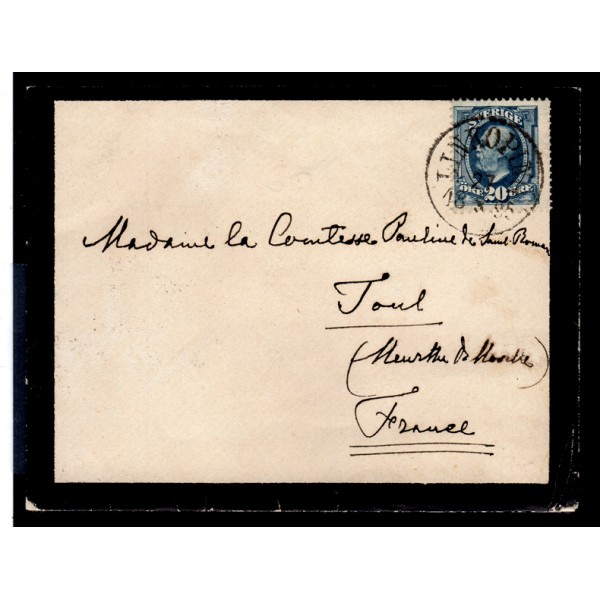 SVERIGE
LINKÖPING
27
1895
ÖRE 20 ÖRE
Madame la Comtesse Pauline de Saint-Roman
Toul
(Meurthe & Moselle)
France